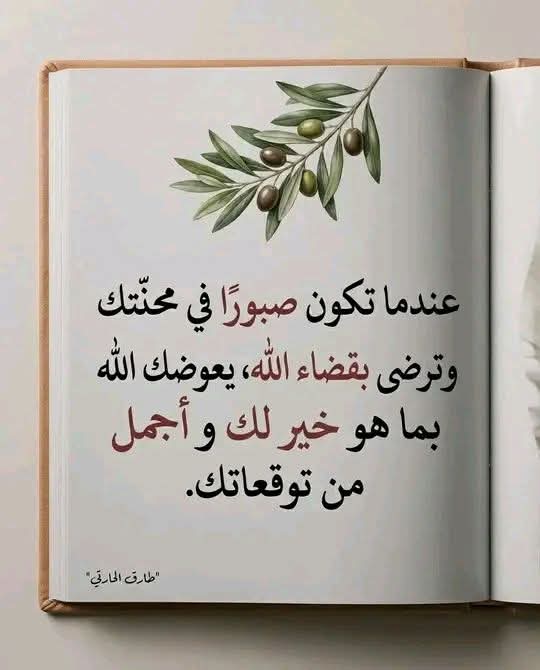 عندما تكون صبورًا في محنّتك
وترضى بقضاء الله، يعوضك الله
بما هو خير لك و أجمل
من توقعاتك.
"طارق الحارثي"